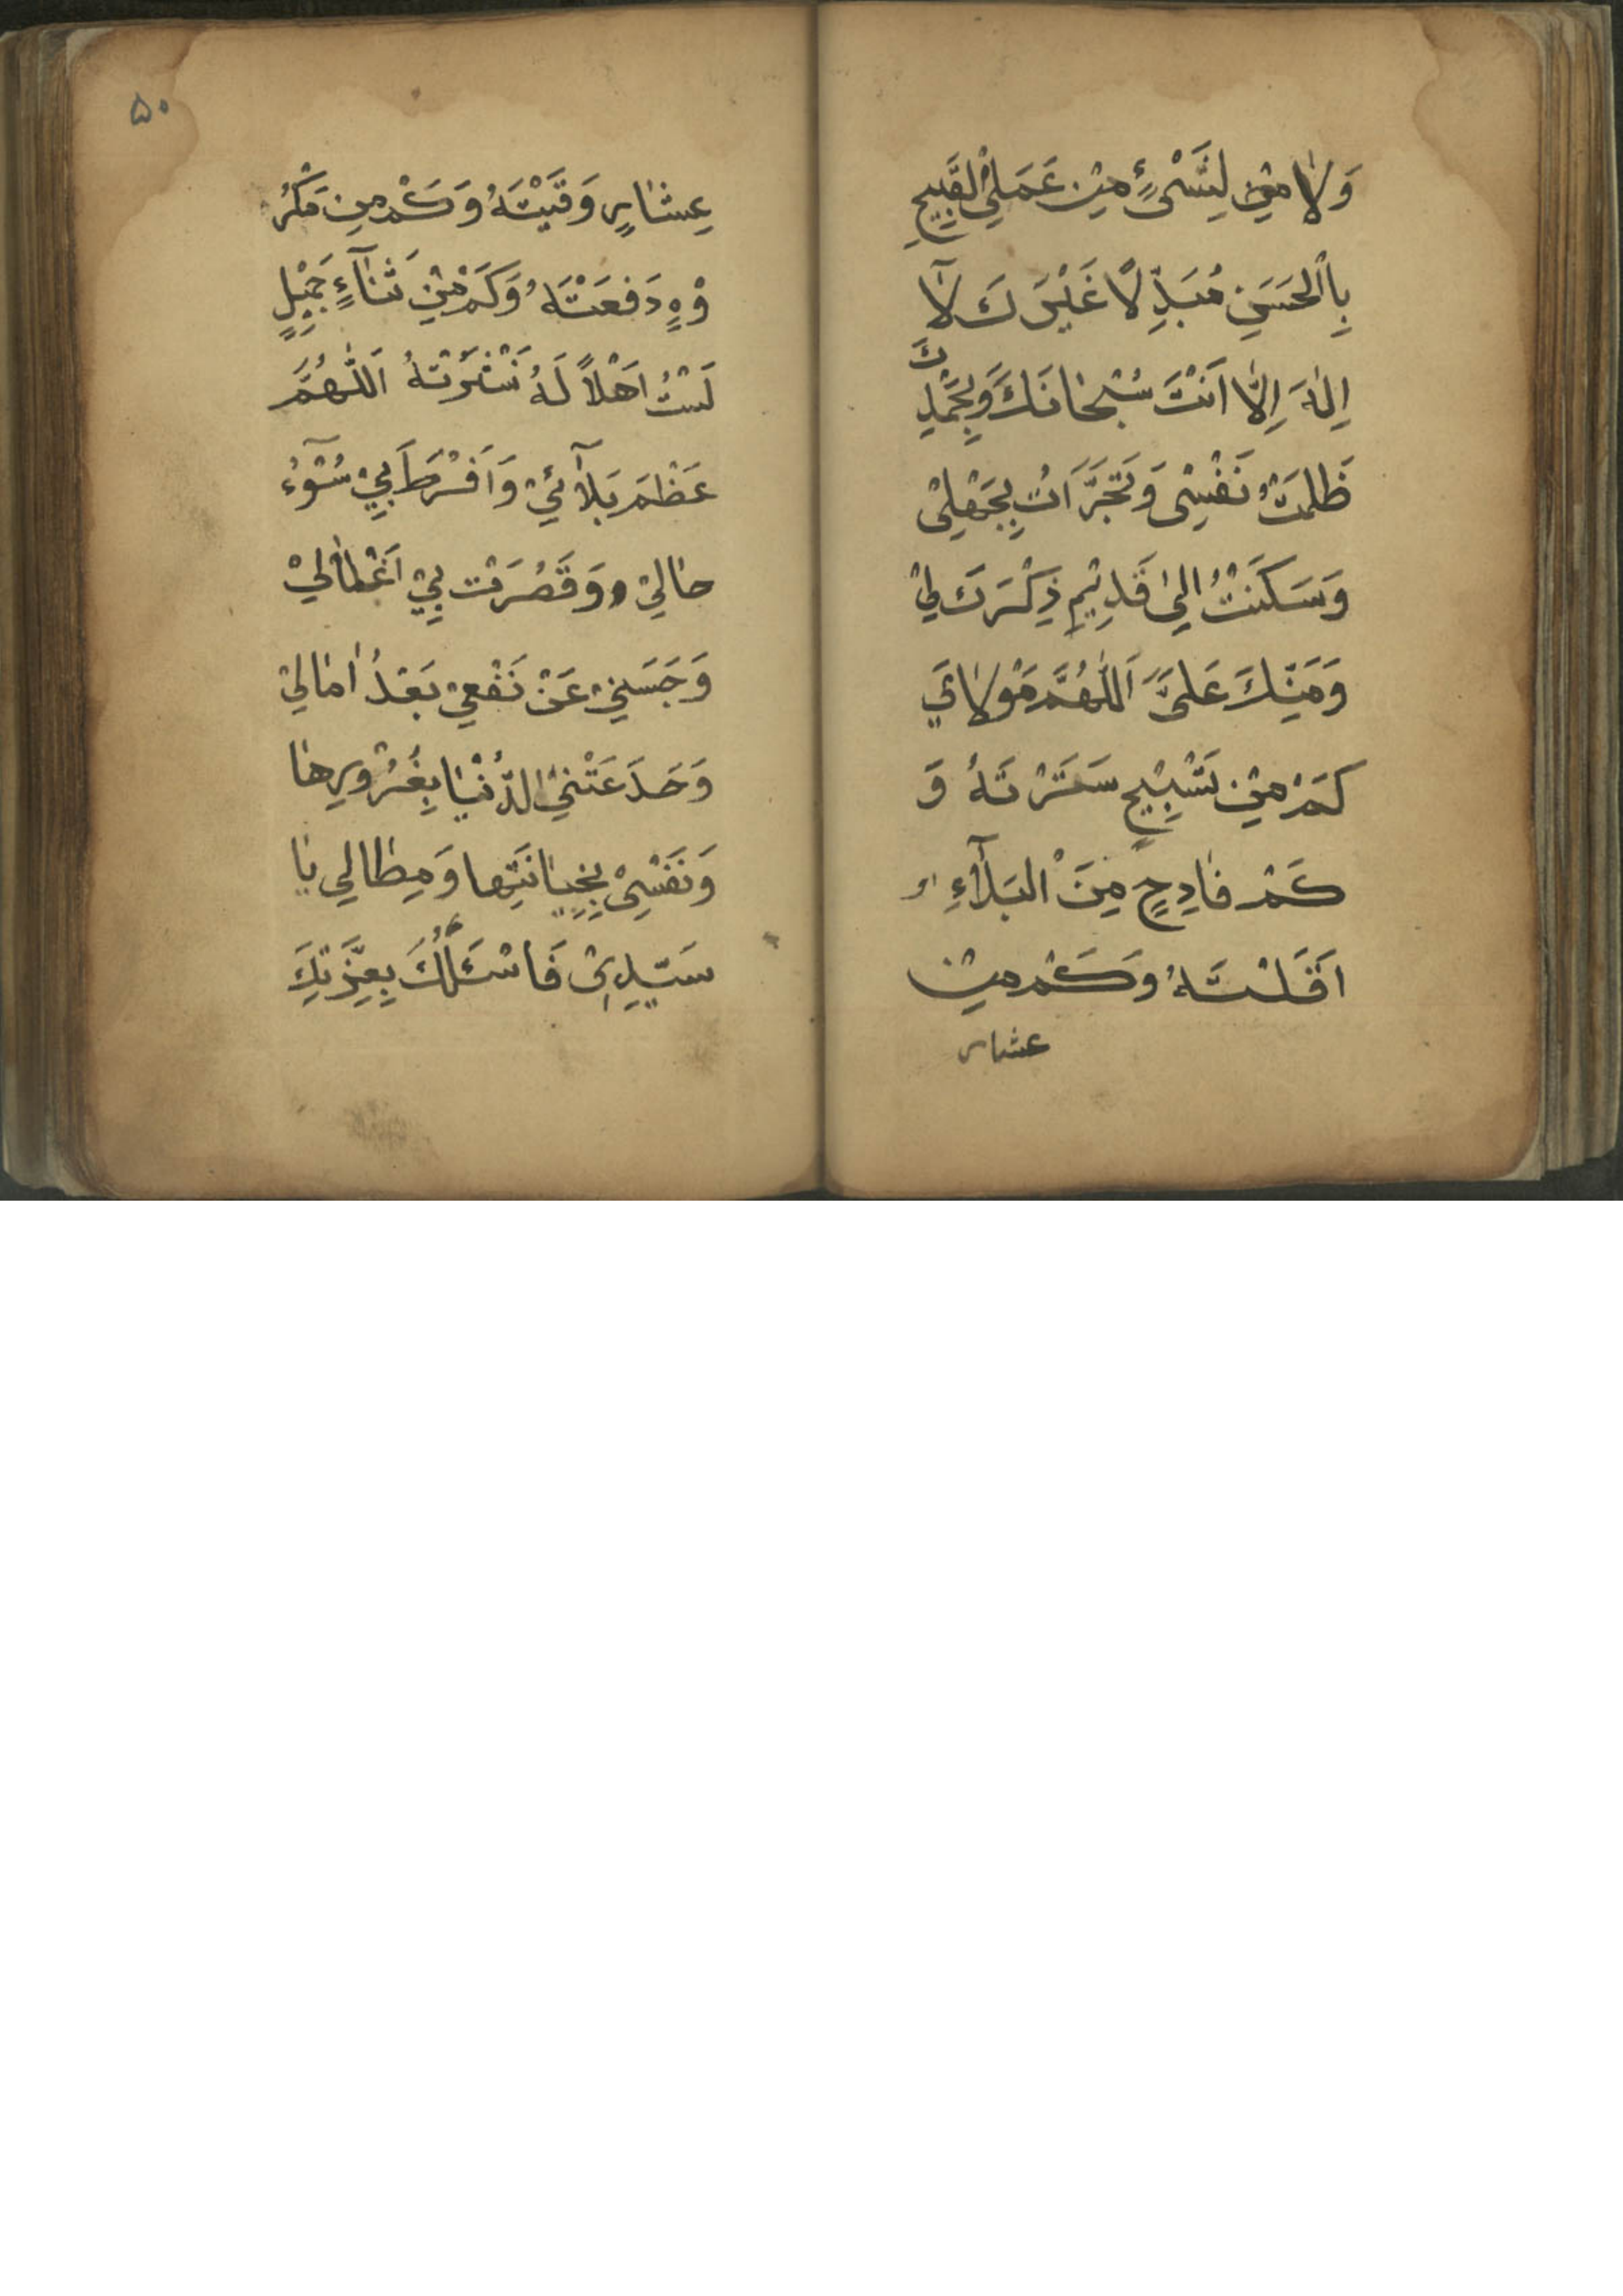 وَلاٰ مِنْ لِشَىْءٍ مِنْ عَمَلِيْ الْقَبِيحِ
بِالْحَسَنِ مُبَدِّلاً غَيْرَكَ لآ
اِلٰهَ اِلاّٰ اَنْتَ سُبْحٰانَكَ وَبِحَمْدِكَ
ظَلَمْتُ نَفْسِى وَتَجَرَّاَتُ بِجَهْلِىْ
وَسَكَنْتُ اِلىٰ قَدِيْمِ ذِكْرِكَ لِيْ
وَمَنِّكَ عَلَىَّ اَللّٰهُمَّ مَوْلاٰيَ
كَمْ مِنْ تَسْبِيْحٍ سَتَرْتَهُ وَ
كَمْ فٰادِحٍ مِنَ الْبَلآءِ
اَقَلْتَهُ وَكَمْ مِنْ
عشار
۵۰
عِشٰارٍ وَقَيْتَهُ وَكَمْ مِن مَكْرُ
وْهٍ دَفَعْتَهُ وَكَمْ مِنْ ثَنٰآءٍ جَمْيِلٍ
لَسْتُ اَهْلاً لَهُ نَشَرْتَهُ اَللّٰهُمَّ
عَظُمَ بَلآئِيْ وَاَفْرَطَ بِيْ سُوْٓءُ
حٰالِيْ و وَقَصُرَتْ بِيْ اَعْمٰالِيْ
وَحَبَسَنِيْ عَنْ نَفْعِيْ بَعْدُ اٰمٰالِيْ
وَخَدَعَتْنِيْ الدُّنْيٰا بِغُرُوْرِهٰا
وَنَفْسِىْ بِخِيٰانَتِها وَمِطٰالِي يٰا
سَيّدِىْ فَاسْئَلُكَ بِعِزَّتِكَ